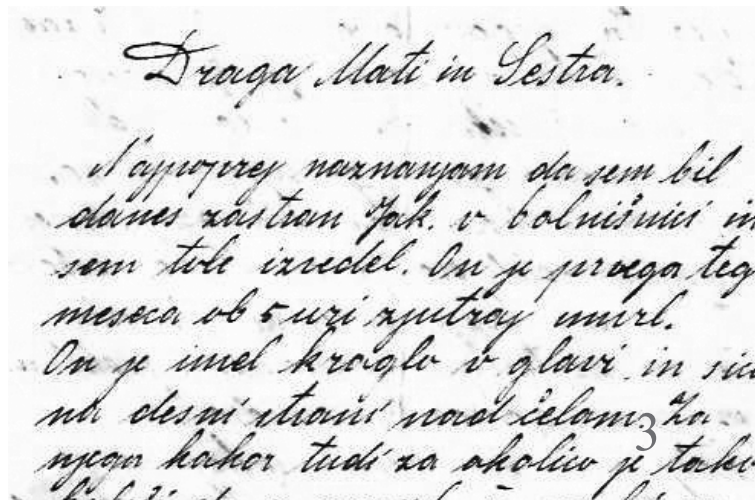 Draga Mati in Sestra.
Najpoprej naznanjam da sem bil
danes zastran Jak. v bolnišnici in
sem tole izvedel. On je prvega teg
meseca ob 5 uri zjutraj umrl.
On je imel kroglo v glavi in sic
na desni strani nad čelam. Za
3
njega kakor tudi za okolico je tako